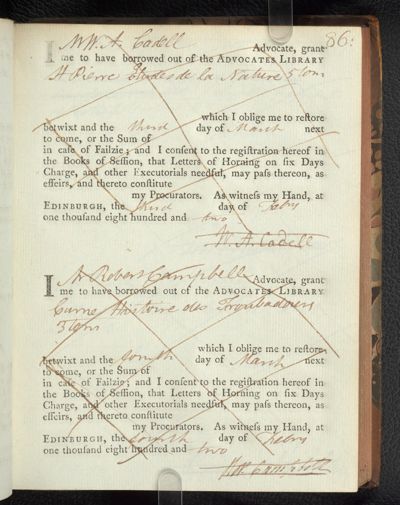 86.
I Mr W. A. Cadell Advocate, grant
me to have borrowed out of the ADVOCATES LIBRARY
St Pierre Etudes de la Nature 5 tom
which I oblige me to restore
betwixt and the third day of March next
to come, or the Sum of
in case of Failzie; and I consent to the registration hereof in
the Books of Session, that Letters of Horning on six Days
Charge, and other Executorials needful, may pass thereon, as
effeirs, and thereto constitute
my Procurators. As witness my Hand, at
EDINBURGH, the third day of Feby
one thousand eight hundred and two
W. A. Cadell
I Mr Robert Campbell Advocate, grant
me to have borrowed out of the ADVOCATES LIBRARY
Curne Histoire des Troubadours
3 tom
which I oblige me to restore
betwixt and the fourth day of March next
to come, or the Sum of
in case of Failzie; and I consent to the registration hereof in
the Books of Session, that Letters of Horning on six Days
Charge, and other Executorials needful, may pass thereon, as
effeirs, and thereto constitute
my Procurators. As witness my Hand, at
EDINBURGH, the fourth day of Feby
one thousand eight hundred and two
Campbell